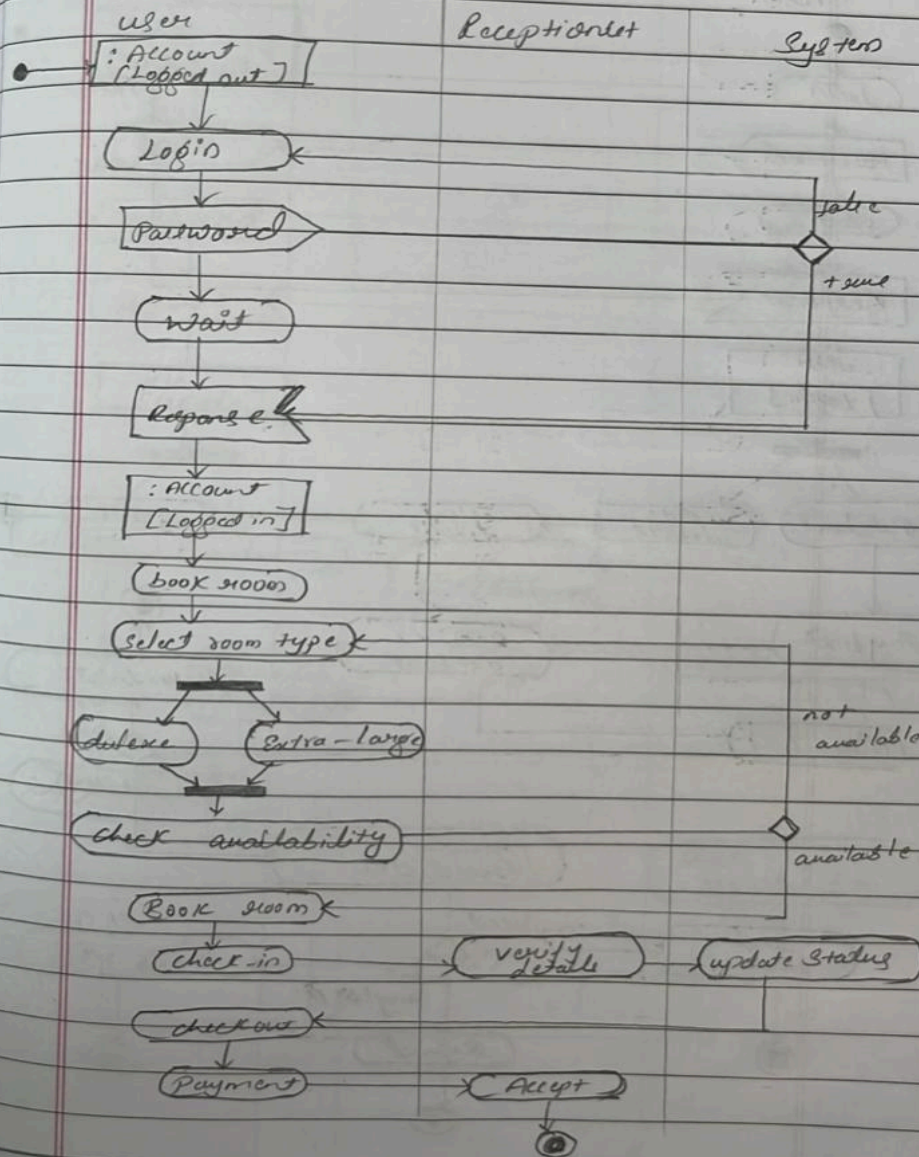 user
Receptionist
System
: Account
[Logged out]
Login
false
Password
true
Wait
Response
: Account
[Logged in]
book room
Select room type
not
available
duluxe
Extra-large
check availability
available
Book room
check-in
verify
details
update Status
checkout
Payment
Accept